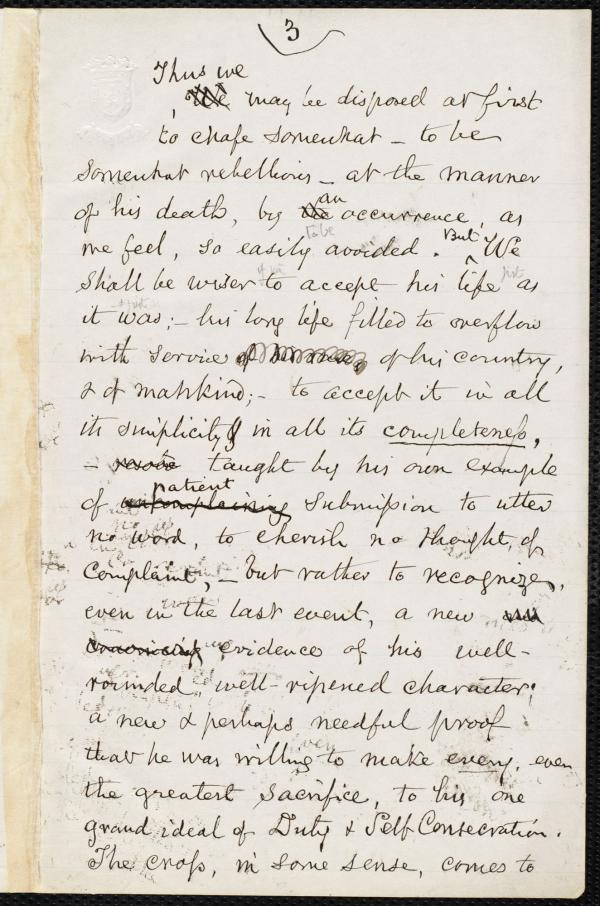 3
Thus we
We may be disposed at first
to chafe somewhat – to be
somewhat rebellious – at the manner
an
of his death, by the occurrence, as
to be
we feel, so easily avoided. But We
shall be wiser to accept his life as
it was; – his long life filled to overflow
with service of his country,
& of mankind; – to accept it in all
its simplicity & in all its completeness,
– taught by his own example
patient
of uncomplaining submission to utter
no word, to cherish no thought, of
Complaint, – but rather to recognize,
even in the last event, a new
convincing evidence of his well-
rounded, well-ripened character;
a new & perhaps needful proof
that he was willing to make every, even
the greatest sacrifice, to his one
grand ideal of Duty & Self Consecration.
The cross, in some sense, comes to